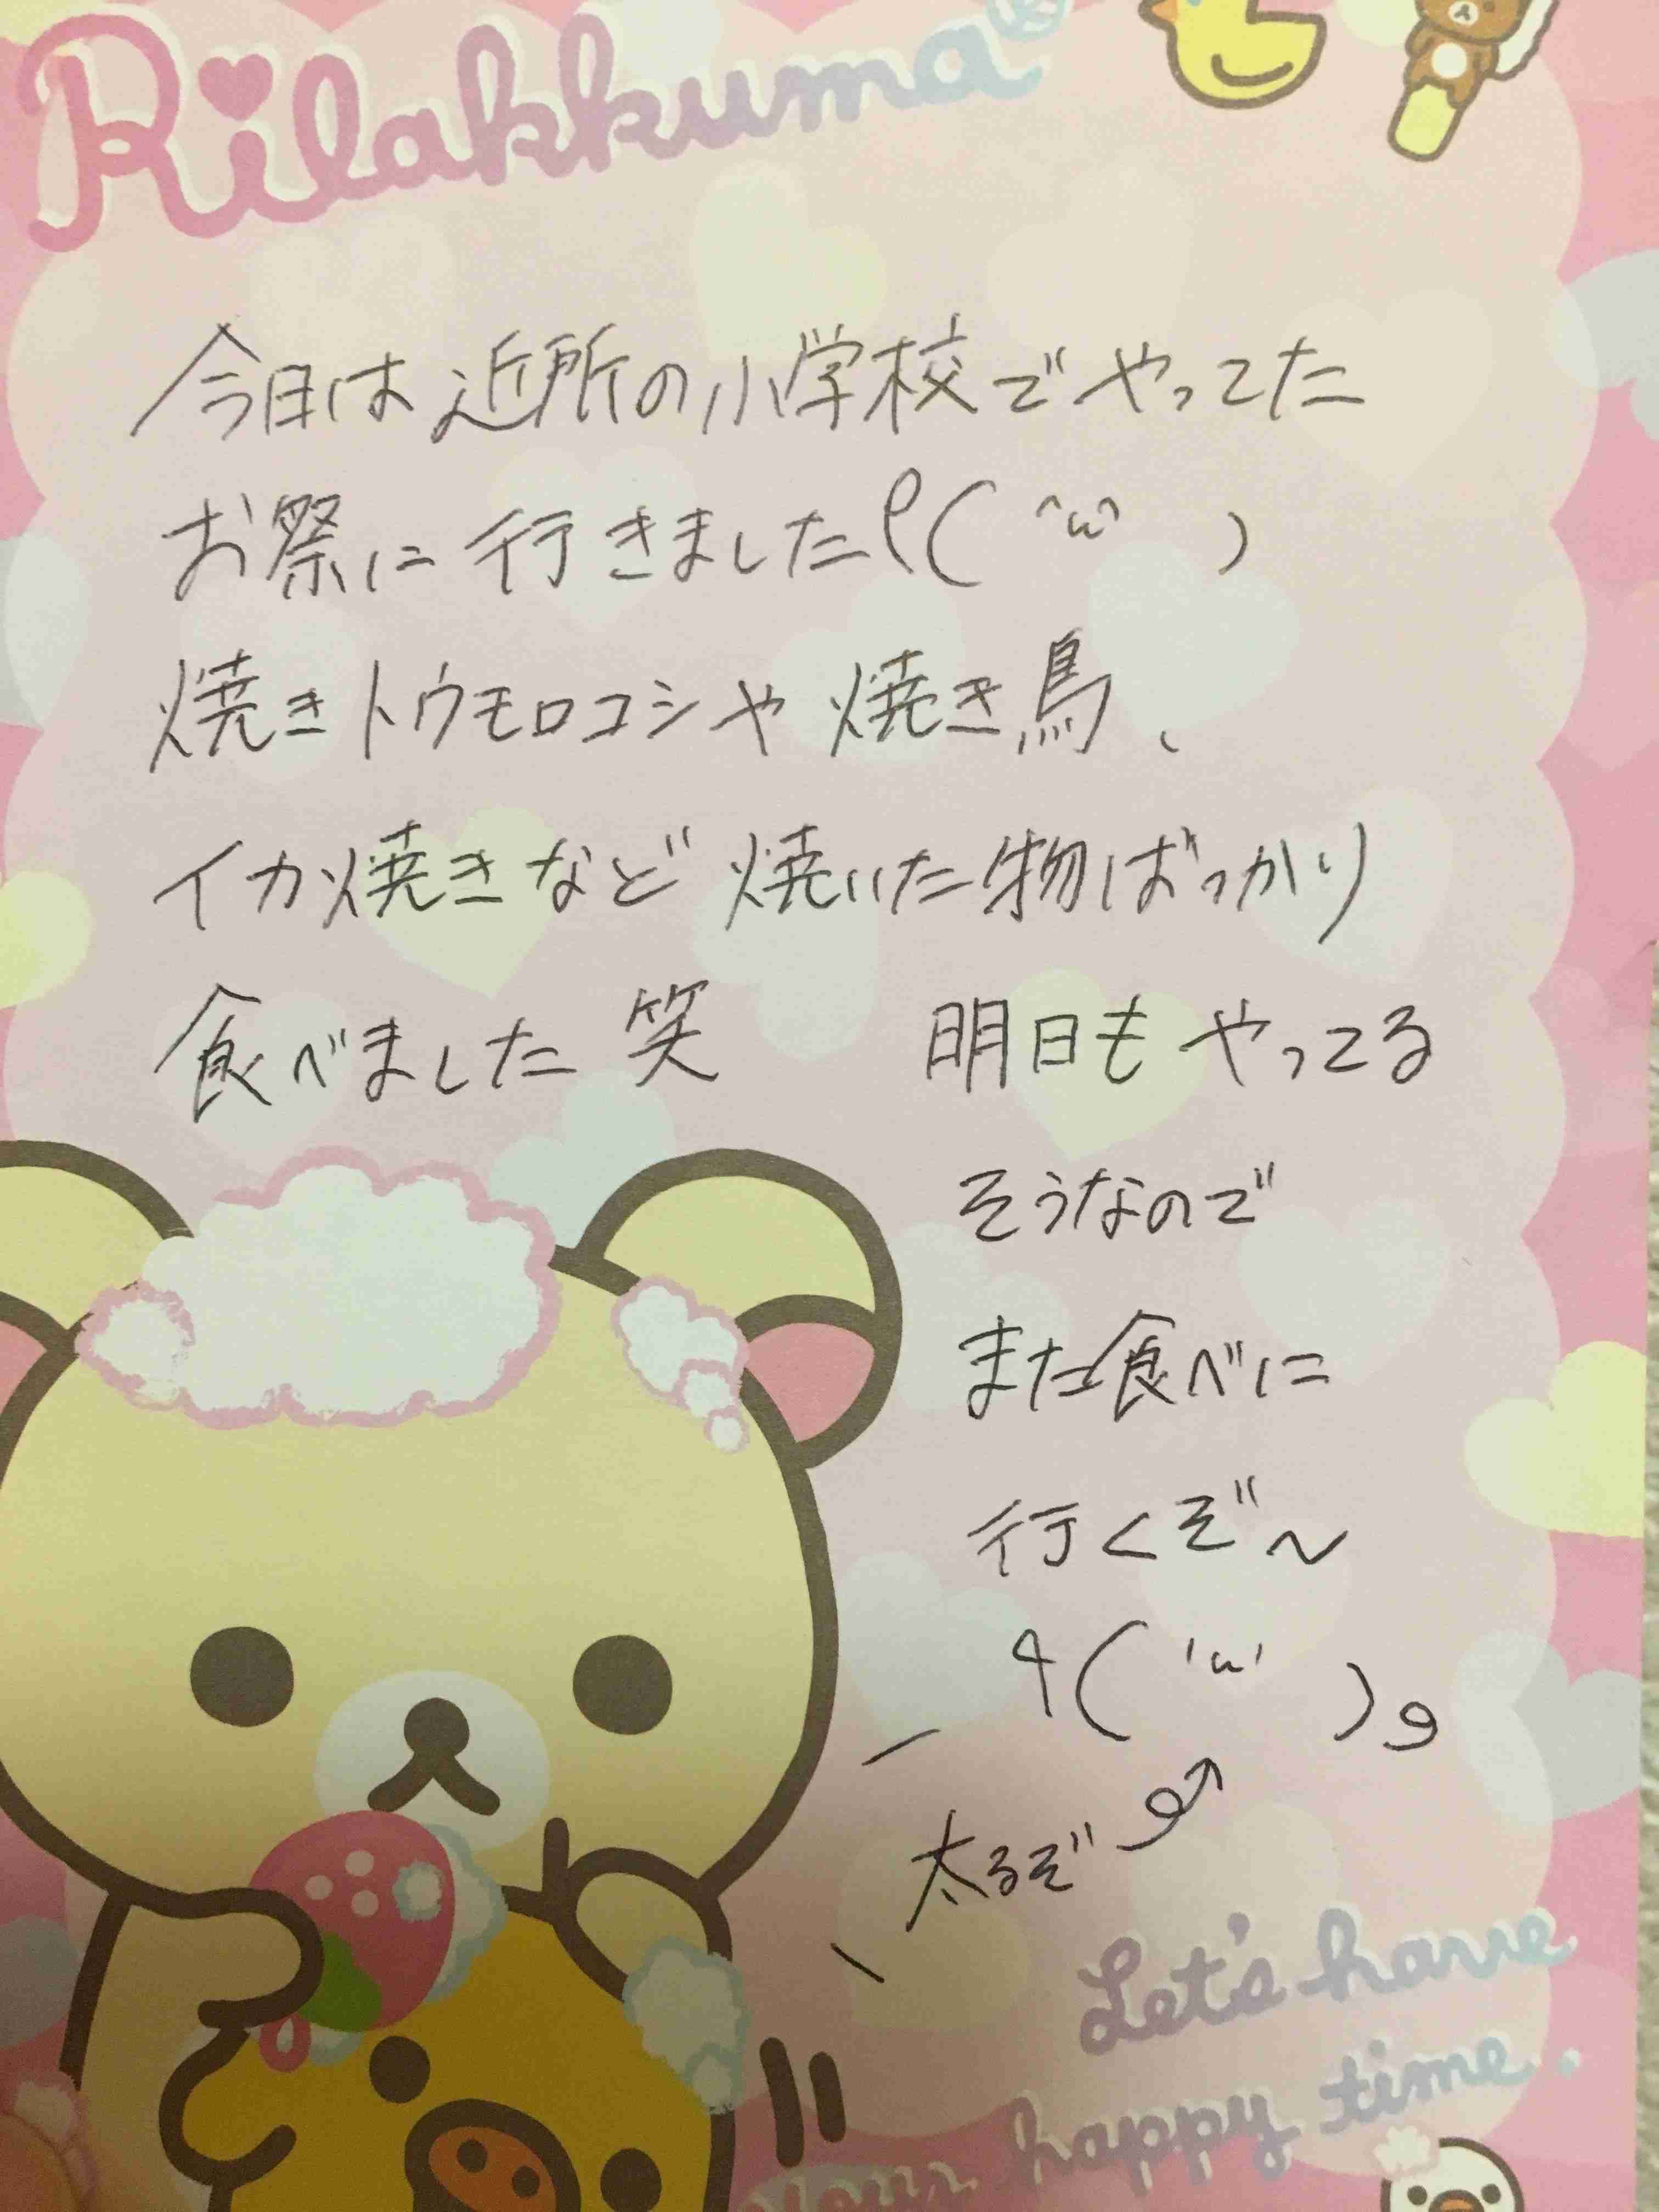 Rilakkuma
今日は近所の小学校でやってた
お祭に行きましたρ( ^ω^ )
焼きトウモロコシや焼き鳥、
イカ焼きなど焼いた物ばっかり
食べました笑 明日もやってる
そうなので
また食べに
行くぞ〜
٩( 'ω' )و
太るぞ
Let's have
your happy time.